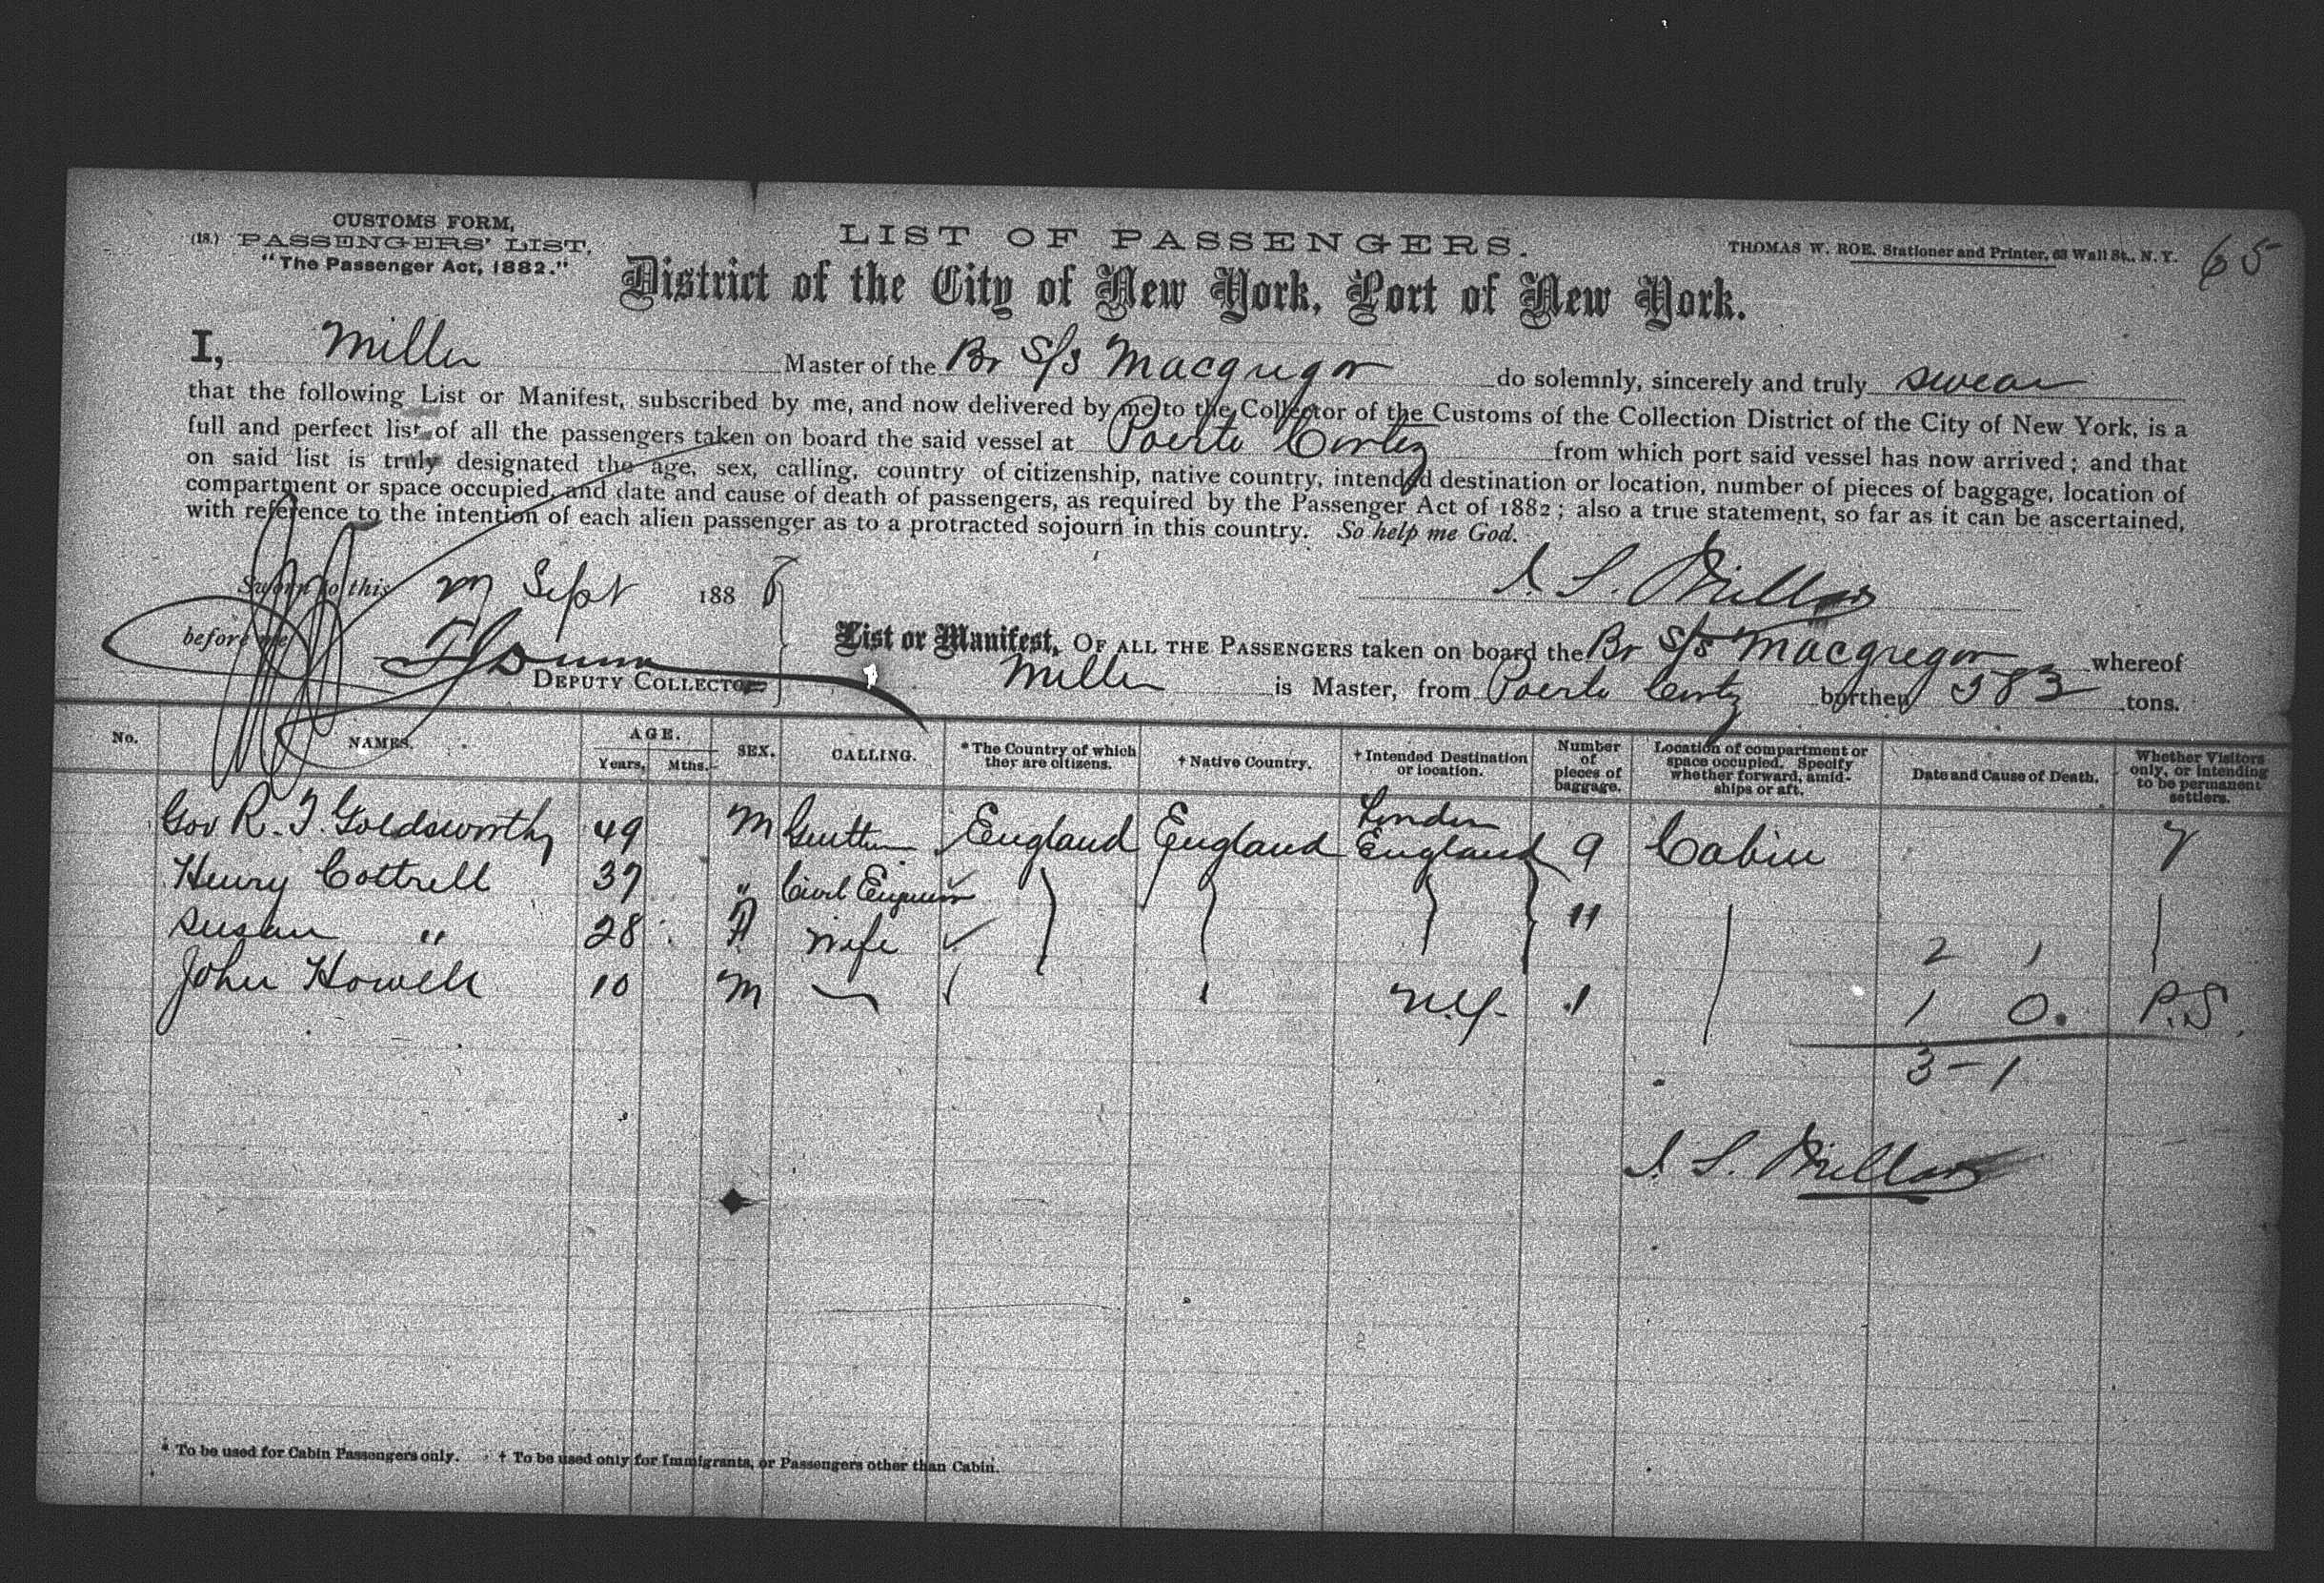 CUSTOMS FORM,
(18.) PASSENGERS' LIST.
"The Passenger Act, 1882."
LIST OF PASSENGERS.
THOMAS W. ROE, Stationer and Printer, 63 Wall St., N. Y.
65
District of the City of New York, Port of New York.
I, Miller Master of the Br S/s Macgregor do solemnly, sincerely and truly swear
that the following List or Manifest, subscribed by me, and now delivered by me to the Collector of the Customs of the Collection District of the City of New York, is a
full and perfect list of all the passengers taken on board the said vessel at Poerto Cortez from which port said vessel has now arrived; and that
on said list is truly designated the age, sex, calling, country of citizenship, native country, intended destination or location, number of pieces of baggage, location of
compartment or space occupied, and date and cause of death of passengers, as required by the Passenger Act of 1882; also a true statement, so far as it can be ascertained,
with reference to the intention of each alien passenger as to a protracted sojourn in this country. So help me God.
Sworn to this Sept 188
before me
DEPUTY COLLECTOR
List or Manifest, OF ALL THE PASSENGERS taken on board the Br S/s Macgregor whereof
Miller is Master, from Poerto Cortez burthen 583 tons.
No. NAMES. AGE. Years. Mths. SEX. CALLING. * The Country of which they are citizens. † Native Country. † Intended Destination or location. Number of pieces of baggage. Location of compartment or space occupied. Specify whether forward, amidships or aft. Date and Cause of Death. Whether Visitors only, or intending to be permanent settlers.
Gov R. T. Goldsworthy 49 M England England London England 9 Cabin
Henry Cottrell 37 " Civil Engineer
Susan " 28 Wife " 2 1
John Howell 10 M — N.Y. 1 1 0. P.S.
3 - 1
* To be used for Cabin Passengers only. † To be used only for Immigrants, or Passengers other than Cabin.